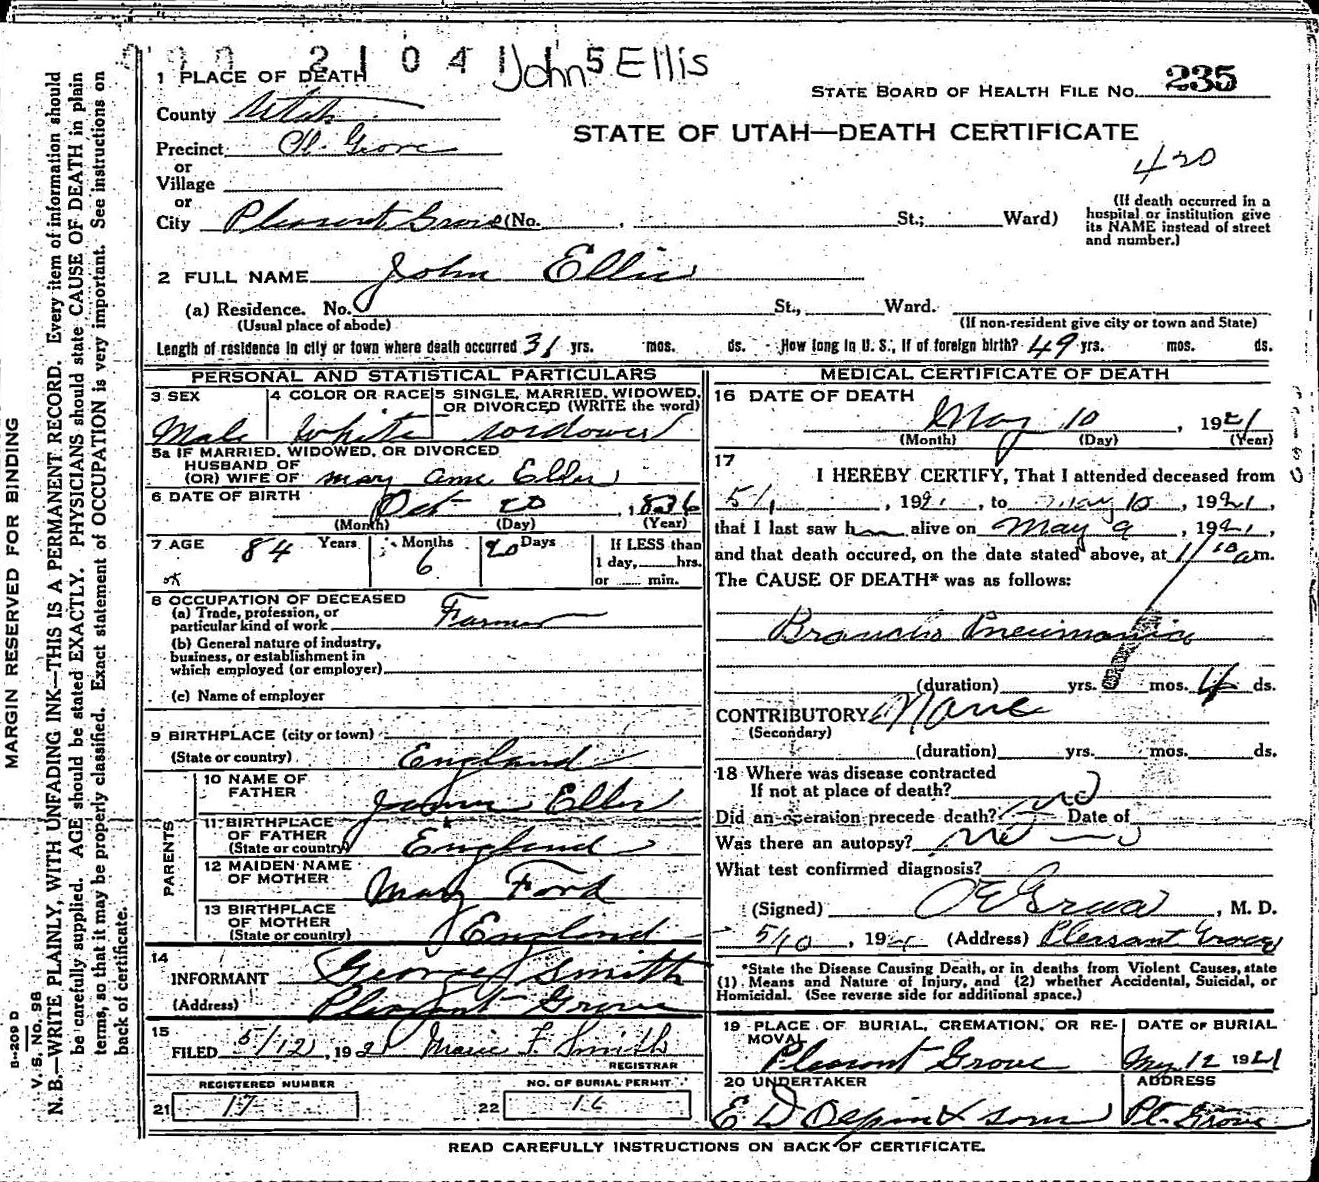 2 1 0 4 1 John S Ellis
1 PLACE OF DEATH
STATE BOARD OF HEALTH FILE No. 235
County Utah
STATE OF UTAH—DEATH CERTIFICATE
Precinct Pl. Grove
420
or
Village
or
City Pleasant Grove (No. , St.; Ward)
(If death occurred in a
hospital or institution give
its NAME instead of street
and number.)
2 FULL NAME John Ellis
(a) Residence. No. St., Ward.
(Usual place of abode) (If non-resident give city or town and State)
Length of residence in city or town where death occurred 31 yrs. mos. ds. How long in U. S., if of foreign birth? 49 yrs. mos. ds.
PERSONAL AND STATISTICAL PARTICULARS
3 SEX Male
4 COLOR OR RACE White
5 SINGLE, MARRIED, WIDOWED,
OR DIVORCED (WRITE the word)
Widower
5a IF MARRIED, WIDOWED, OR DIVORCED
HUSBAND OF
(OR) WIFE OF Mary Ann Ellis
6 DATE OF BIRTH Oct 20, 1836
(Month) (Day) (Year)
7 AGE 84 Years 6 Months 20 Days
If LESS than
1 day, hrs.
or min.
ok
8 OCCUPATION OF DECEASED
(a) Trade, profession, or
particular kind of work Farmer
(b) General nature of industry,
business, or establishment in
which employed (or employer)
(c) Name of employer
9 BIRTHPLACE (city or town)
(State or country) England
PARENTS
10 NAME OF
FATHER James Ellis
11 BIRTHPLACE
OF FATHER
(State or country) England
12 MAIDEN NAME
OF MOTHER Mary Ford
13 BIRTHPLACE
OF MOTHER
(State or country) England
14
INFORMANT George Smith
(Address) Pleasant Grove
15
FILED 5/12, 1921 Marie F. Smith
REGISTRAR
REGISTERED NUMBER
21 17
NO. OF BURIAL PERMIT
22 16
MEDICAL CERTIFICATE OF DEATH
16 DATE OF DEATH
May 10, 1921
(Month) (Day) (Year)
17
I HEREBY CERTIFY, That I attended deceased from
5/1, 1921, to May 10, 1921,
that I last saw him alive on May 9, 1921,
and that death occured, on the date stated above, at 1/10 am.
The CAUSE OF DEATH* was as follows:
Broncho Pneumonia
(duration) yrs. mos. 4 ds.
CONTRIBUTORY None
(Secondary)
(duration) yrs. mos. ds.
18 Where was disease contracted
If not at place of death?
Did an operation precede death? no Date of
Was there an autopsy? no
What test confirmed diagnosis?
(Signed) O E Grua, M. D.
5/10, 1921 (Address) Pleasant Grove
*State the Disease Causing Death, or in deaths from Violent Causes, state
(1) Means and Nature of Injury, and (2) whether Accidental, Suicidal, or
Homicidal. (See reverse side for additional space.)
19 PLACE OF BURIAL, CREMATION, OR RE-
MOVAL
Pleasant Grove
DATE OF BURIAL
May 12 1921
20 UNDERTAKER
E D Olpin & Sons
ADDRESS
Pl. Grove
READ CAREFULLY INSTRUCTIONS ON BACK OF CERTIFICATE.
MARGIN RESERVED FOR BINDING
B—209 D
V. S. No. 98
N. B.—WRITE PLAINLY, WITH UNFADING INK—THIS IS A PERMANENT RECORD. Every item of information should
be carefully supplied. AGE should be stated EXACTLY. PHYSICIANS should state CAUSE OF DEATH in plain
terms, so that it may be properly classified. Exact statement of OCCUPATION is very important. See instructions on
back of certificate.